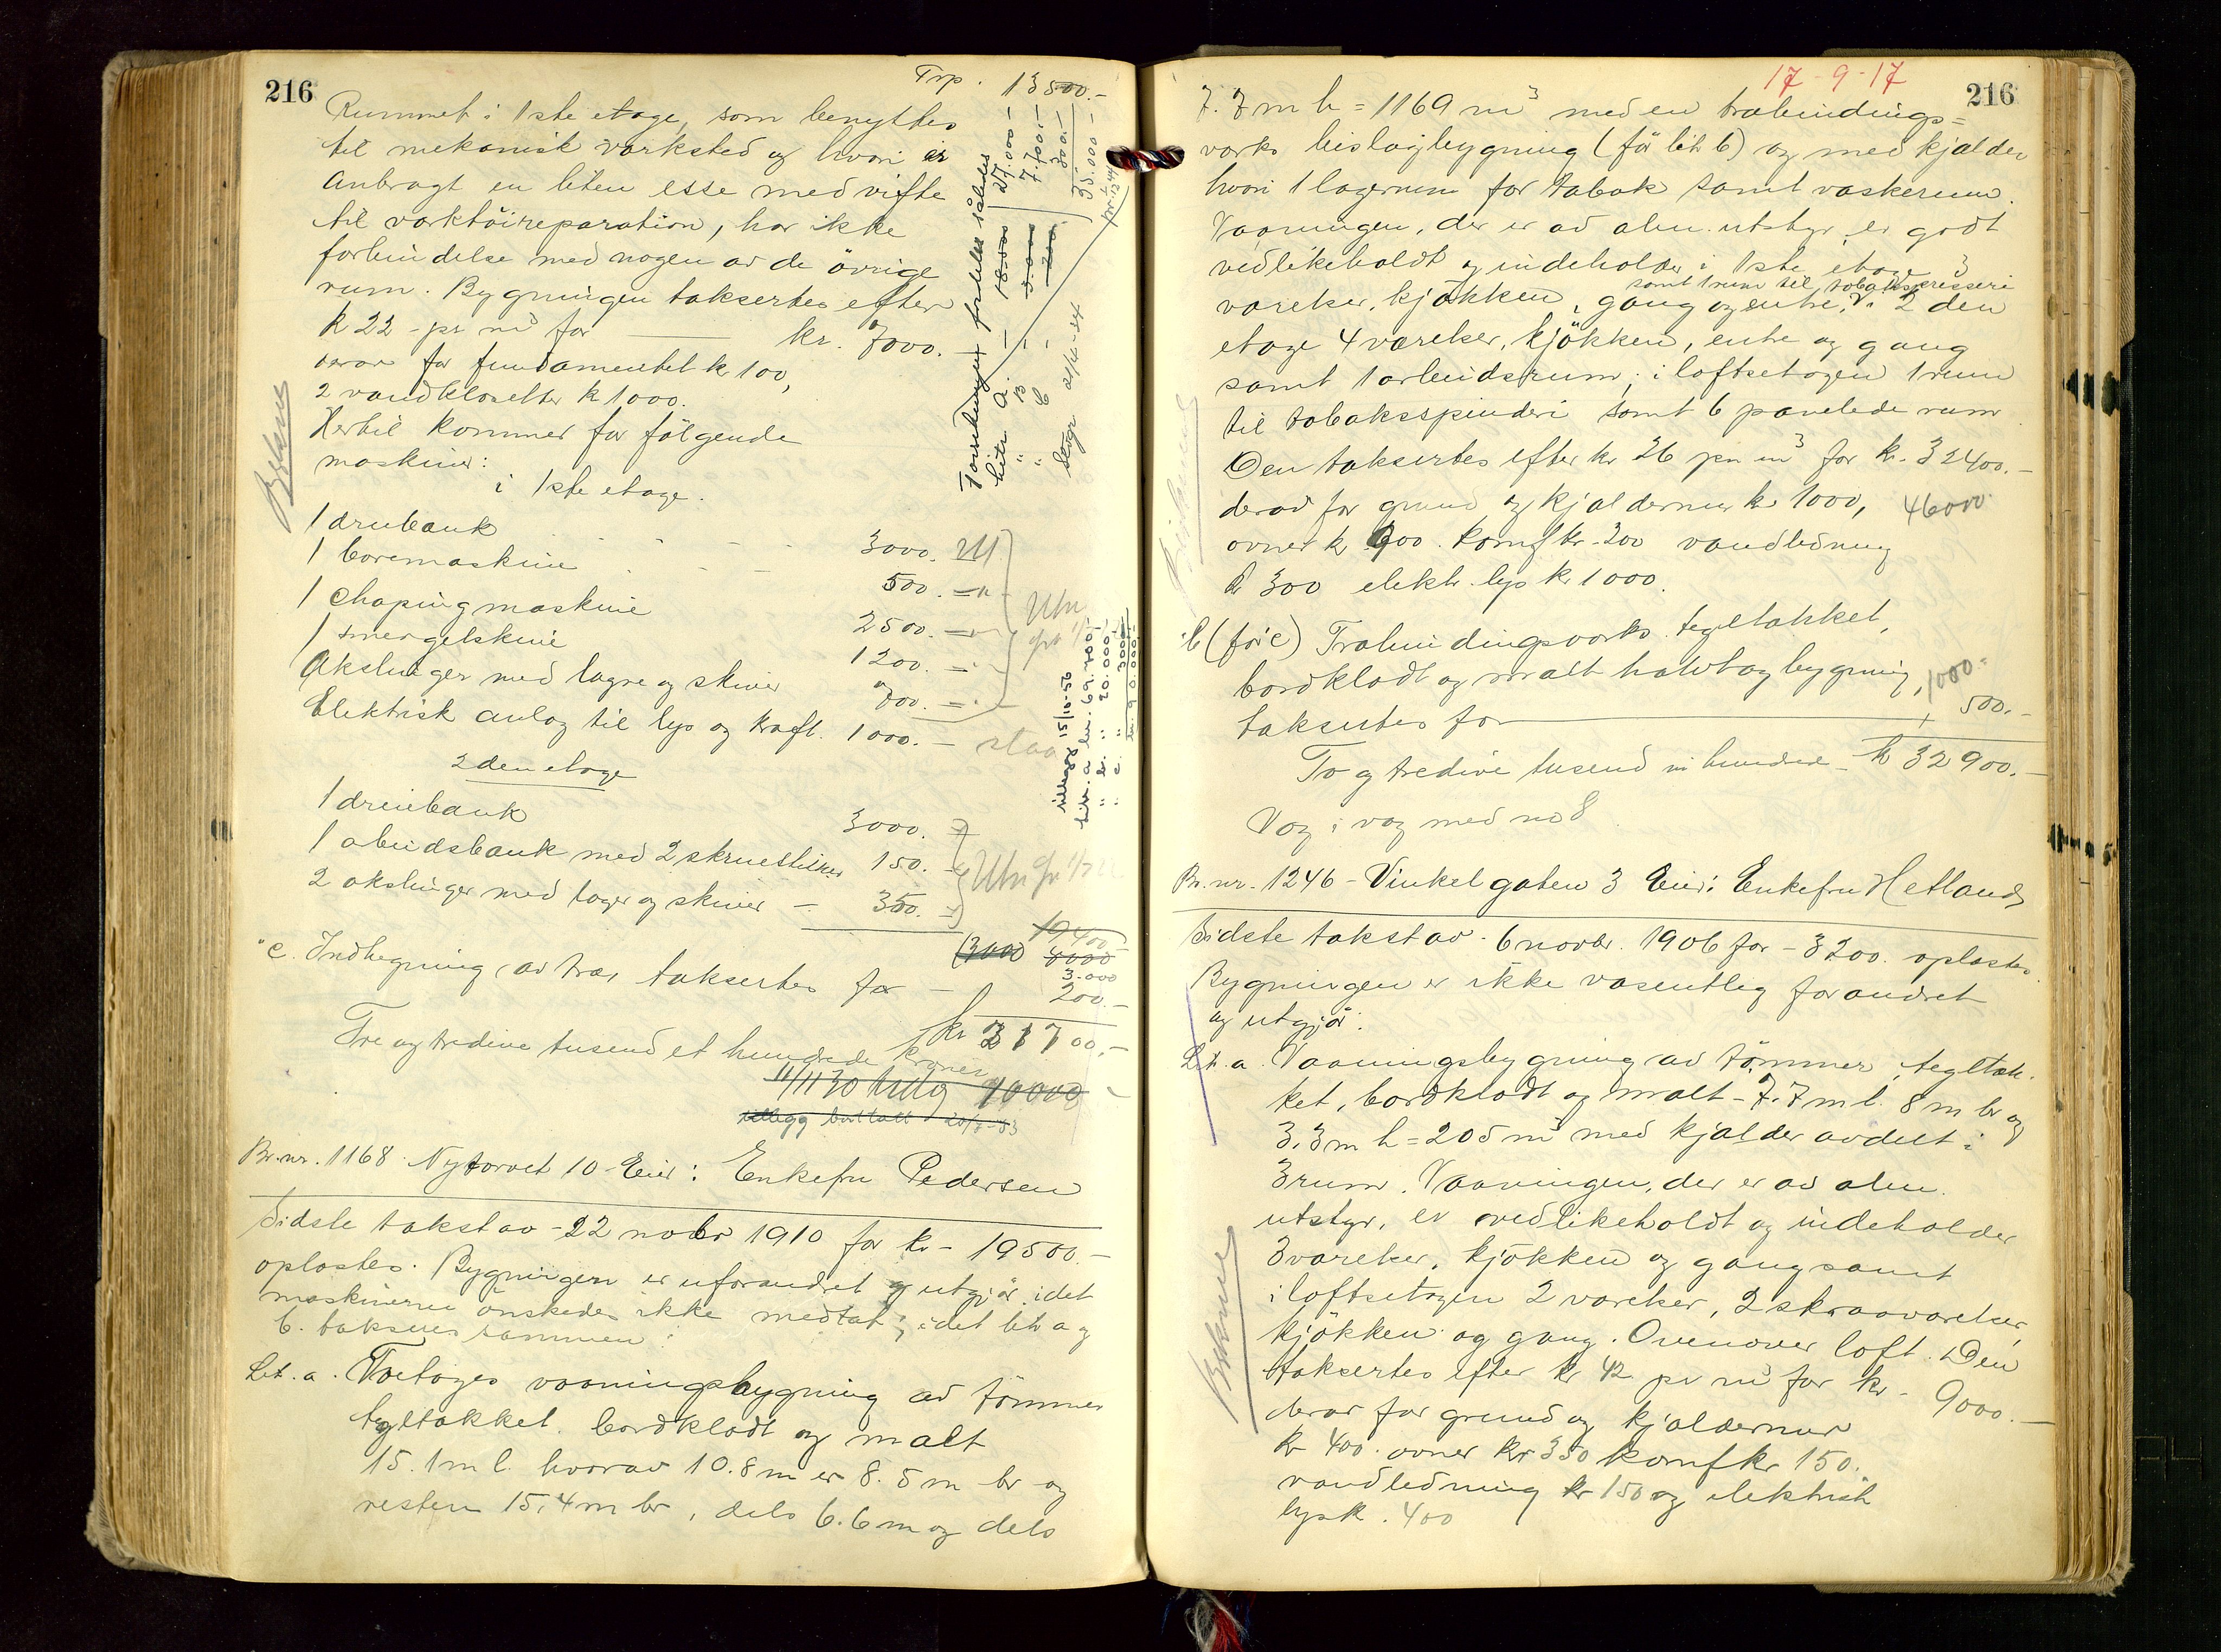 216
Trp. 13500.-
Rummet i 1ste etage, som benyttes
til mekanisk værksted og hvori er
anbragt en liten esse med vifte
til værktöireparation, har ikke
forbindelse med nogen av de övrige
rum. Bygningen taksertes efter
k 22 - pr m³ for kr. 7000.-
derav for fundamentet kr 100,
2 vandklosetter k 1000.
Hertil kommer for fölgende
maskiner:
i 1ste etage.
1 dreibank 3000.
1 boremaskine 500.
1 chapingmaskine 2500.
1 smergelskive 1200.
Akslinger med lagre og skiver
Elektrisk anlæg til lys og kraft. 1000.-
2den etage
1 dreiebank 3000.
1 arbeidsbank med 2 skruestikker 150.
2 akslinger med lager og skiver - 350.
10400
(3000) 8000
3.000
"c. Indhegning av træ taksertes for - 200.-
Tre og tredive tusend et hundrede kroner
11/11 30 tillæg 90000
tillegg bortfalt
Forsikringen fordeles således
Litr. a. - 18.000 27.000.-
" B - 7.700.-
" C - 300.-
35.000.-
tillegg 15/10-56
litr. a kr. 69.700,-
" b. " 20.000,-
" c. " 300,-
kr. 90.000,-
Br.nr. 1168 Nytorvet 10 Eier: Enkefru Pedersen
Sidste takst av - 22 novbr 1910 for kr - 19500.-
oplæstes. Bygningen er uforandret og utgjör, idet
maskinerne önskedes ikke medtat, idet litr a og
b. takseres sammen:
Lit. a. Toetages vaaningsbygning av tömmer
tegltækket. bordklædt og malt
15.1 m l. hvorav 10.8 m er 8.5 m br og
resten 15.4 m br, dels 6.6 m og dels
17-9-17
216
7.7 m h = 1169 m³ med en træbindings=
værks bislagbygning (för lit b) og med kjælder
hvori 1 lagerrum for tobak samt vaskerum.
Vaaningen, der er av alm. utstyr, er godt
vedlikeholdt og indeholder i 1ste etage 3
samt 1 rum til tobakspresseri
værelser, kjökken, gang og entre, i 2den
etage 4 værelser, kjökken, entre og gang
samt 1 arbeidsrum; i loftsetagen 1 rum
til tobaksspinderi samt 6 panelede rum
Den taksertes efter kr 26 pr m³ for kr. 32400.-
derav for grund og kjældermur kr 1000, 46000
ovner k 900. komf kr. 200 vandledning
k 300 elektr. lys kr 1000.
b (för c) Træbindingsværks tegltækket,
bordklædt og malt halvtagbygning, 1000.-
taksertes for 500.-
To og tredive tusend ni hundrede - k 32900.-
Væg i væg med no 8
Br.nr. 1246 - Vinkelgaten 3 Eier: Enkefru Hetland
Sidste takst av 6 novbr. 1906 for - 3200. oplæstes
Bygningen er ikke væsentlig forandret
og utgjör:
Lit. a. Vaaningsbygning av tömmer, tegltæk-
ket, bordklædt og malt - 7.7 m l. 8 m br og
3.3 m h = 205 m³ med kjælder avdelt i
3 rum. Vaaningen, der er av alm.
utstyr, er vedlikeholdt og indeholder
3 værelser, kjökken og gang samt
i loftsetagen 2 værelser, 2 skraaværelser,
kjökken og gang. Ovenover loft. Den
taksertes efter kr 42 pr m³ for kr - 9000.-
derav for grund og kjældermur
kr 400. ovner kr 350 komf kr 150.
vandledning kr 150 og elektrisk
lys k. 400